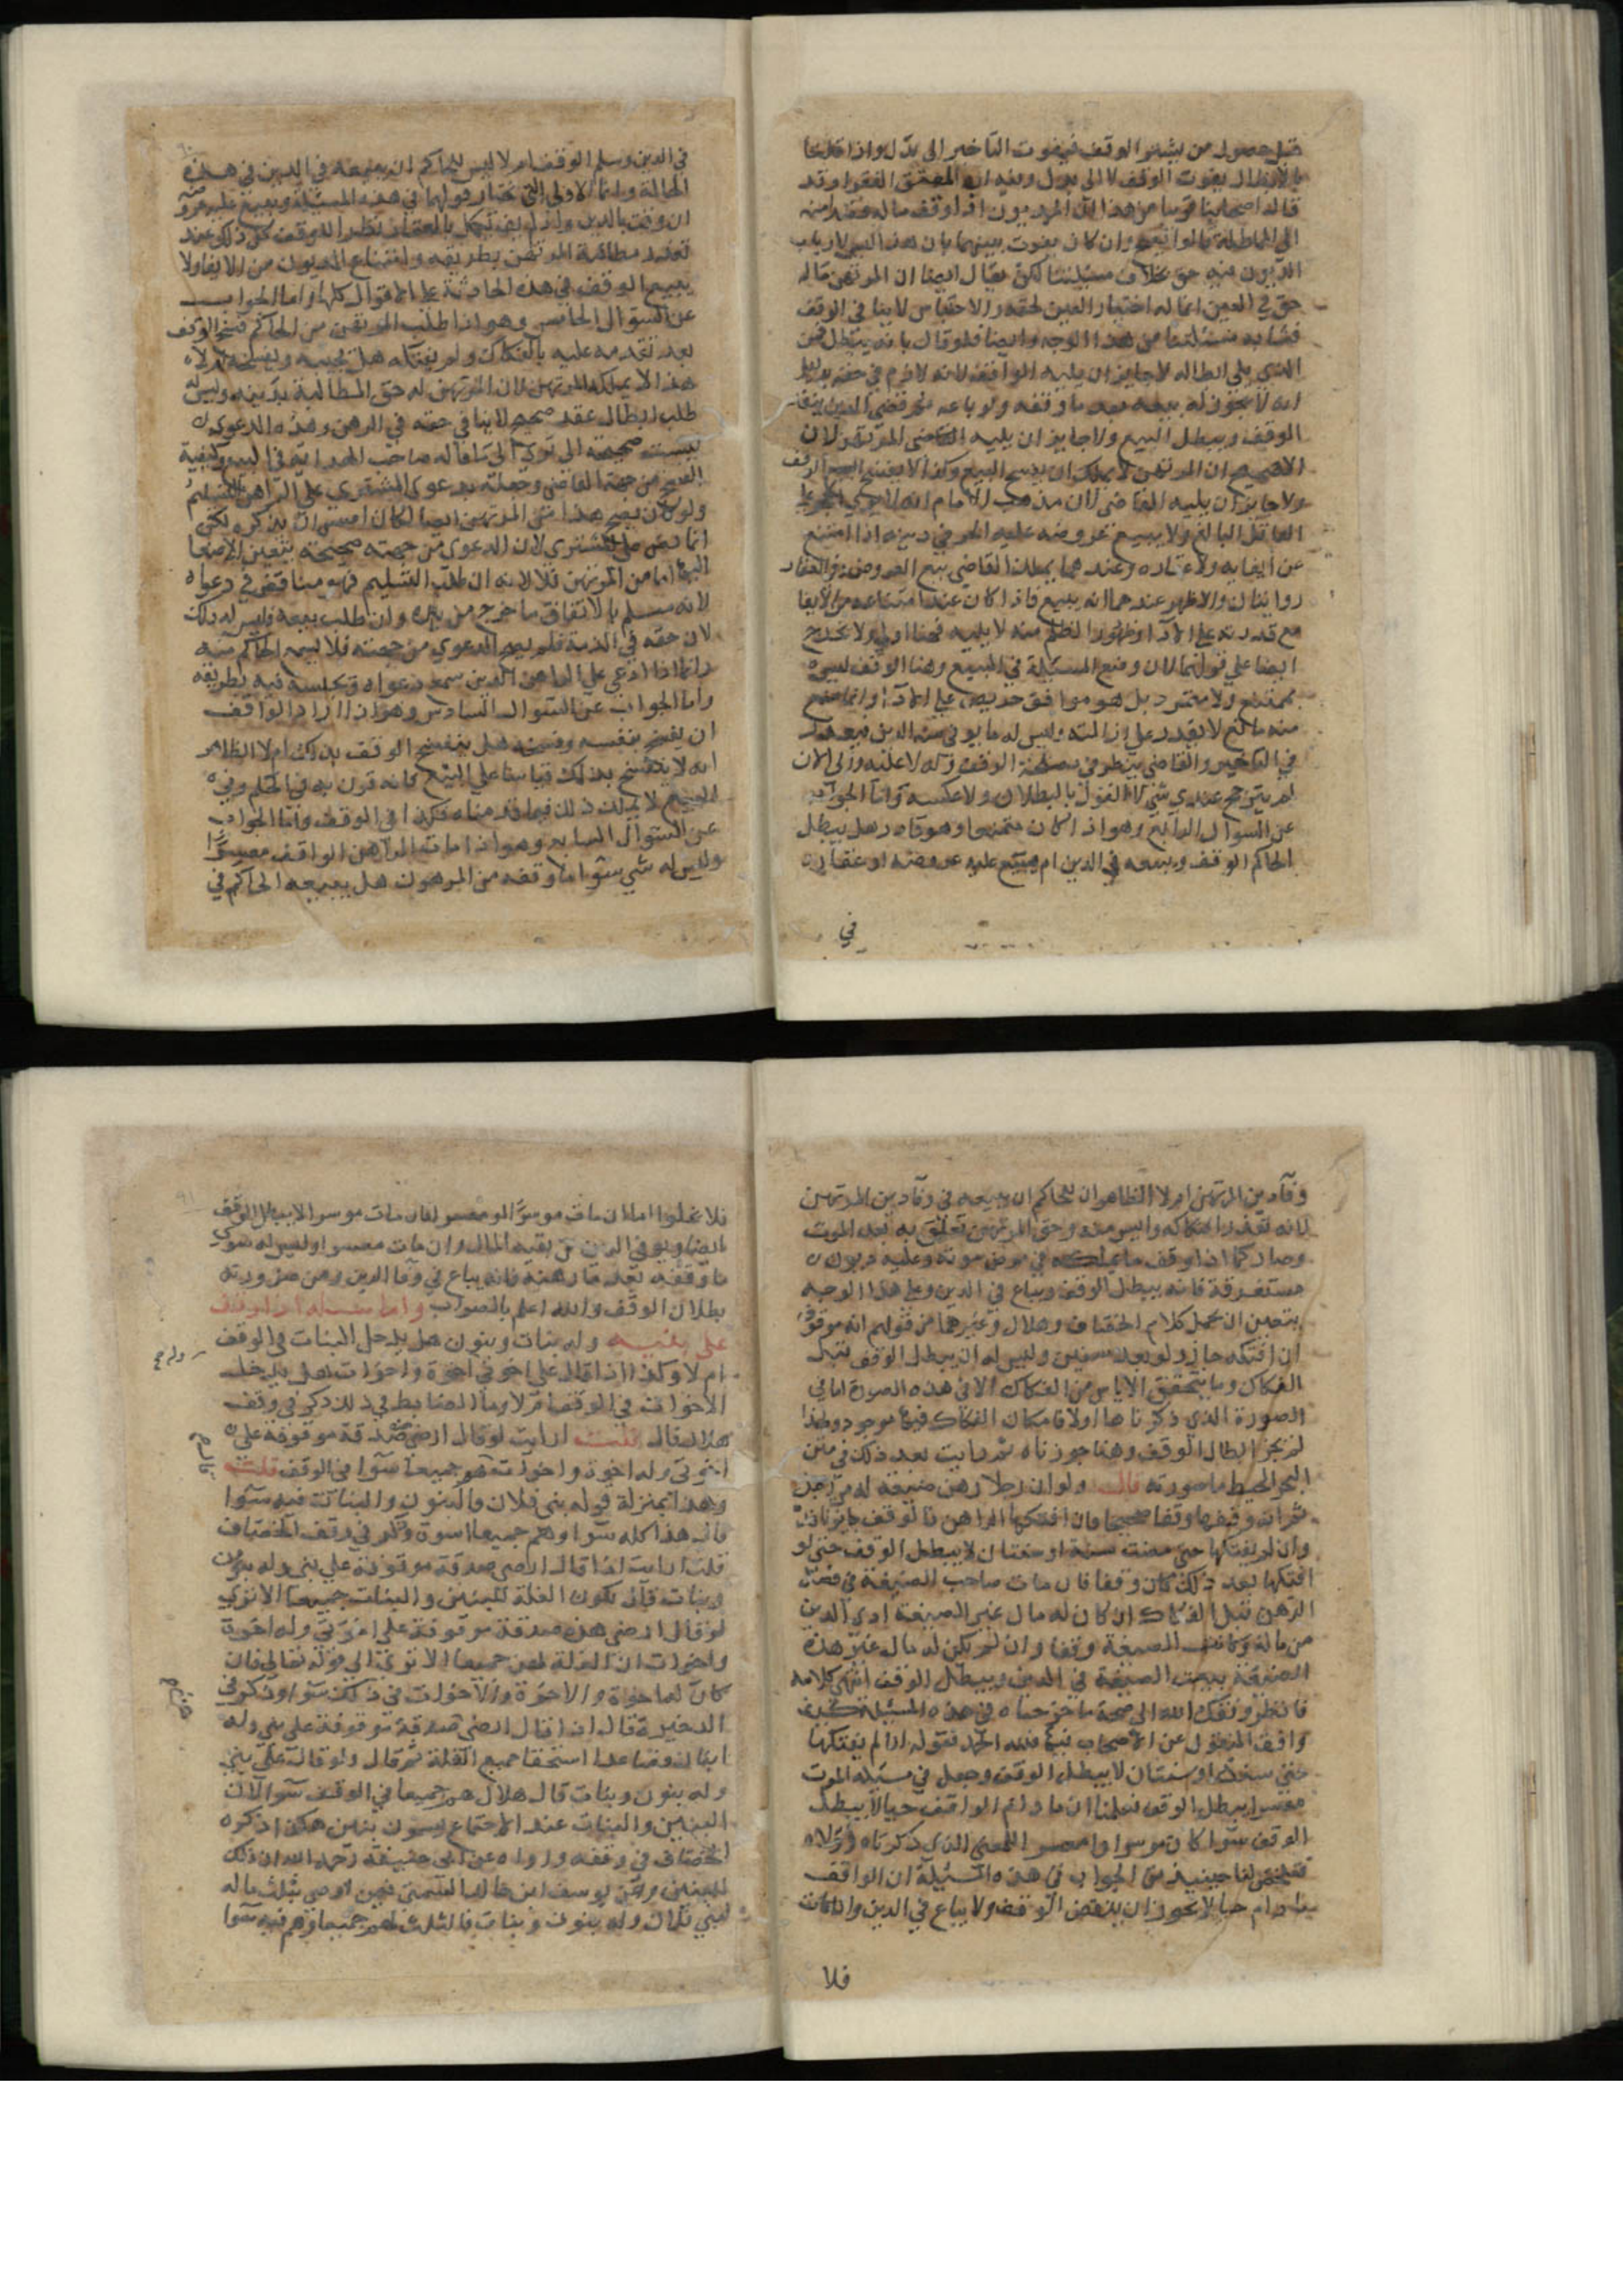 قبل حصول من يشتر الوقف فيفوت التاخير الى بدل واذا قلنا
بالابطال يفوت الوقف لا الى بدل وفيه ابطال حق الفقرا وقد
الى المماطلة وان كان يفوت بينهما بان هذا لارباب
الديون فيه حق بخلاف مسئلتنا لكن يقال ايضا ان المرتهن ماله
حق في العين انما له اختيار العين لحقه والاحتباس لا ينافي الوقف
فشابه مسئلتنا من هذا الوجه وايضا فلو قال بانه يبطل فمن
الذي يلي ابطاله لا جايز ان يليه الواقف لانه لازم في حقه بدليل
انه لا يجوز له بيعه بعد ما وقفه ولو باعه ثم قضى الدين ينفذ
الوقف ويبطل البيع ولا جايز ان يليه القاضي المرتهن لان
الصحيح ان المرتهن لا يملك ان يفسخ البيع وكذا لا يفسخ الوقف
ولا جايز ان يليه القاضي لان مذهب الامام انه لا يرى الحجر على
العاقل البالغ ولا يبيع عروضه عليه في دينه اذا امتنع
عن ايفايه وعندهما يملك القاضي بيع العروض وفي العقار
روايتان والاظهر عندهما انه يبيع فاذا كان عند امتناعه من الايفا
مع قدرته على الادا وظهور الظلم منه لا يليه فهنا اولى ولا يخرج
ايضا على قولهما لان وضع المسئلة في البيع وهنا الواقف ليس
بممتنع ولا متمرد بل هو موافق حريص على الادا وانما منع
منه مانع لا يقدر على ازالته وليس له ما يوفي منه الدين
في التاخير والقاضي ينظر في مصلحة الوقف وله لا عليه والى الان
لم يترجح عندي شي لا القول بالبطلان ولا عكسه واما الجواب
عن السوال الرابع وهو اذا كان متمردا وهو قادر هل يبطل
الحاكم الوقف ويبيعه في الدين ام يبيع عليه عروضه او عقاره
في
في الدين وسلم الوقف ام لا ليس للحاكم ان يبيعه في الدين في هذه
الحالة وانما الاولى ان نختار قولهما في هذه المسئلة ويبيع عليه عروضه
ان وفت بالدين وان لم يف تكمل بالعقار نظرا للوقف كل ذلك عند
تعدد مطالبة المرتهن بطريقه وامتناع المديون من الايفا ولا
يبيع الوقف في هذه الحادثة على الاقوال كلها واما الجواب
عن السوال الخامس وهو اذا طلب المرتهن من الحاكم فسخ الوقف
بعد تقدمه عليه بالفكاك ولم يفتكه هل يجيبه ويفسخه ام لا
هذا لا يملكه المرتهن لان المرتهن له حق المطالبة بدينه وليس له
طلب ابطال عقد صحيح لا ينافي حقه في الرهن وهذه الدعوى
ليست صحيحة الا ترى الى ما قاله صاحب الهداية في البيع وكيفية
الفسخ من جهة القاضي وجعلته بدعوى المشتري على الراهن بالتسليم
ولو كان يصح هذا من المرتهن ايضا لكان امس ان يذكره لكن
انما نص على المشتري لان الدعوى من جهته صحيحة يتعين الاصغا
اليها اما من المرتهن فلا لانه ان طلب التسليم فهو مناقض في دعواه
لانه مسلم بالاتفاق ما خرج من يده وان طلب بيعه فليس له ذلك
لان حقه في الذمة فلم يصح الدعوى من جهته فلا يسمع الحاكم منه
وانما اذا ادعى على الراهن الدين سمع دعواه وحبسه فيه بطريقه
واما الجواب عن السوال السادس وهو اذا اراد الواقف
ان يفسخ بنفسه وقفه هل ينفسخ الوقف بذلك ام لا الظاهر
انه لا ينفسخ بذلك قياسا على البيع
الصحيح لا يملك ذلك فيما قدمناه فكذا في الوقف واما الجواب
عن السوال السابع وهو اذا مات الراهن الواقف معسرا
وليس له شي سوا ما وقفه من المرهون هل يبيعه الحاكم في
وفاء دين المرتهن ام لا الظاهر ان للحاكم ان يبيعه في وفاء دين المرتهن
لانه تعذر افتكاكه وايس منه وحق المرتهن تعلق به بعد الموت
وصار كما اذا وقف ما يملكه في مرض موته وعليه ديون
مستغرقة فانه يبطل الوقف ويباع في الدين وعلى هذا الوجه
يتعين ان يحمل كلام الخصاف وهلال وغيرهما من قولهم انه موقوف
ان افتكه جاز ولو بعد سنين وليس له ان يبطل الوقف قبل
الفكاك وما يتحقق الاياس من الفكاك الا في هذه الصورة اما في
الصورة الذي ذكرناها اولا فامكان الفكاك فيها موجود ولهذا
لم يجز ابطال الوقف وهنا جوزناه ثم رايت بعد ذلك في متن
البحر المحيط ما صورته قال ولو ان رجلا رهن ضيعة له من رجل
ثم انه وقفها وقفا صحيحا فان افتكها الراهن فالوقف جايز نافذ
وان لم يفتكها حتى مضت سنة او سنتان لا يبطل الوقف حتى لو
افتكها بعد ذلك كان وقفا فان مات صاحب الضيعة في
الرهن قبل الفكاك ان كان له مال غير الضيعة ادى الدين
من ماله وكانت الضيعة وقفا وان لم يكن له مال غير هذه
الضيعة بيعت الضيعة في الدين ويبطل الوقف انتهى كلامه
فانظر وفقك الله الى صحة ما خرجناه في هذه المسئلة كيف
وافق المنقول عن الاصحاب فيها فلله الحمد فقوله اذا لم يفتكها
حتى سنة او سنتان لا يبطل الوقف وجعل في مسئلة الموت
معسرا يبطل الوقف فعلمنا ان ما دام الواقف حيا لا يبطل
الوقف سوا كان موسرا او معسرا للمعنى الذي ذكرناه اولا
فتلخص لنا حينيذ من الجواب في هذه المسئلة ان الواقف
ما دام حيا لا يجوز ان ينقض الوقف ولا يباع في الدين واذا مات
فلا
فلا يخلوا اما ان مات موسرا او معسرا فان مات موسرا لا يبطل الوقف
ايضا ويوفي الدين من بقية المال وان مات معسرا وليس له سوى
ما وقفه بعد ما رهنه فانه يباع في وفا الدين ومن ضرورته
بطلان الوقف والله اعلم بالصواب واما مسئله اذا وقف
على بنيه وله بنات وبنون هل يدخل البنات في الوقف
ام لا وكذا اذا قال على اخوتي وله اخوة واخوات هل يدخل
الاخوات في الوقف ام لا وما الضابط في ذلك ذكر في وقف
هلال قال قلت ارايت لو قال ارضي صدقة موقوفة على
اخوتي وله اخوة واخوات قال هو جميعا سوا في الوقف قلت
وهذا بمنزلة قوله بني فلان والبنون والبنات فيه سوا
قال هذا كله سوا وهم جميعا اسوة وذكر في وقف الخصاف
قلت ارايت اذا قال ارضي صدقة موقوفة على بني وله بنون
وبنات قال تكون الغلة للبنين والبنات جميعا الا ترى
لو قال ارضي هذه صدقة موقوفة على اخوتي وله اخوة
واخوات ان الغلة لهم جميعا الا ترى الى قوله تعالى فان
كان له اخوة والاخوة والاخوات في ذلك سوا وذكر في
الذخيرة قال اذا قال ارضي صدقة موقوفة على بني وله
ابنان فصاعدا استحقا جميع الغلة ثم قال ولو قال على بني
وله بنون وبنات قال هلال هم جميعا في الوقف سوا لان
البنين والبنات عند الاجتماع يسمون بنين هكذا ذكره
الخصاف في وقفه ورواه عن ابي حنيفة رحمه الله ان ذلك
للبنين وعن يوسف ابن خالد السمتي فيمن اوصى بثلث ماله
لبني فلان وله بنون وبنات فالثلث لهم جميعا وهم فيه سوا